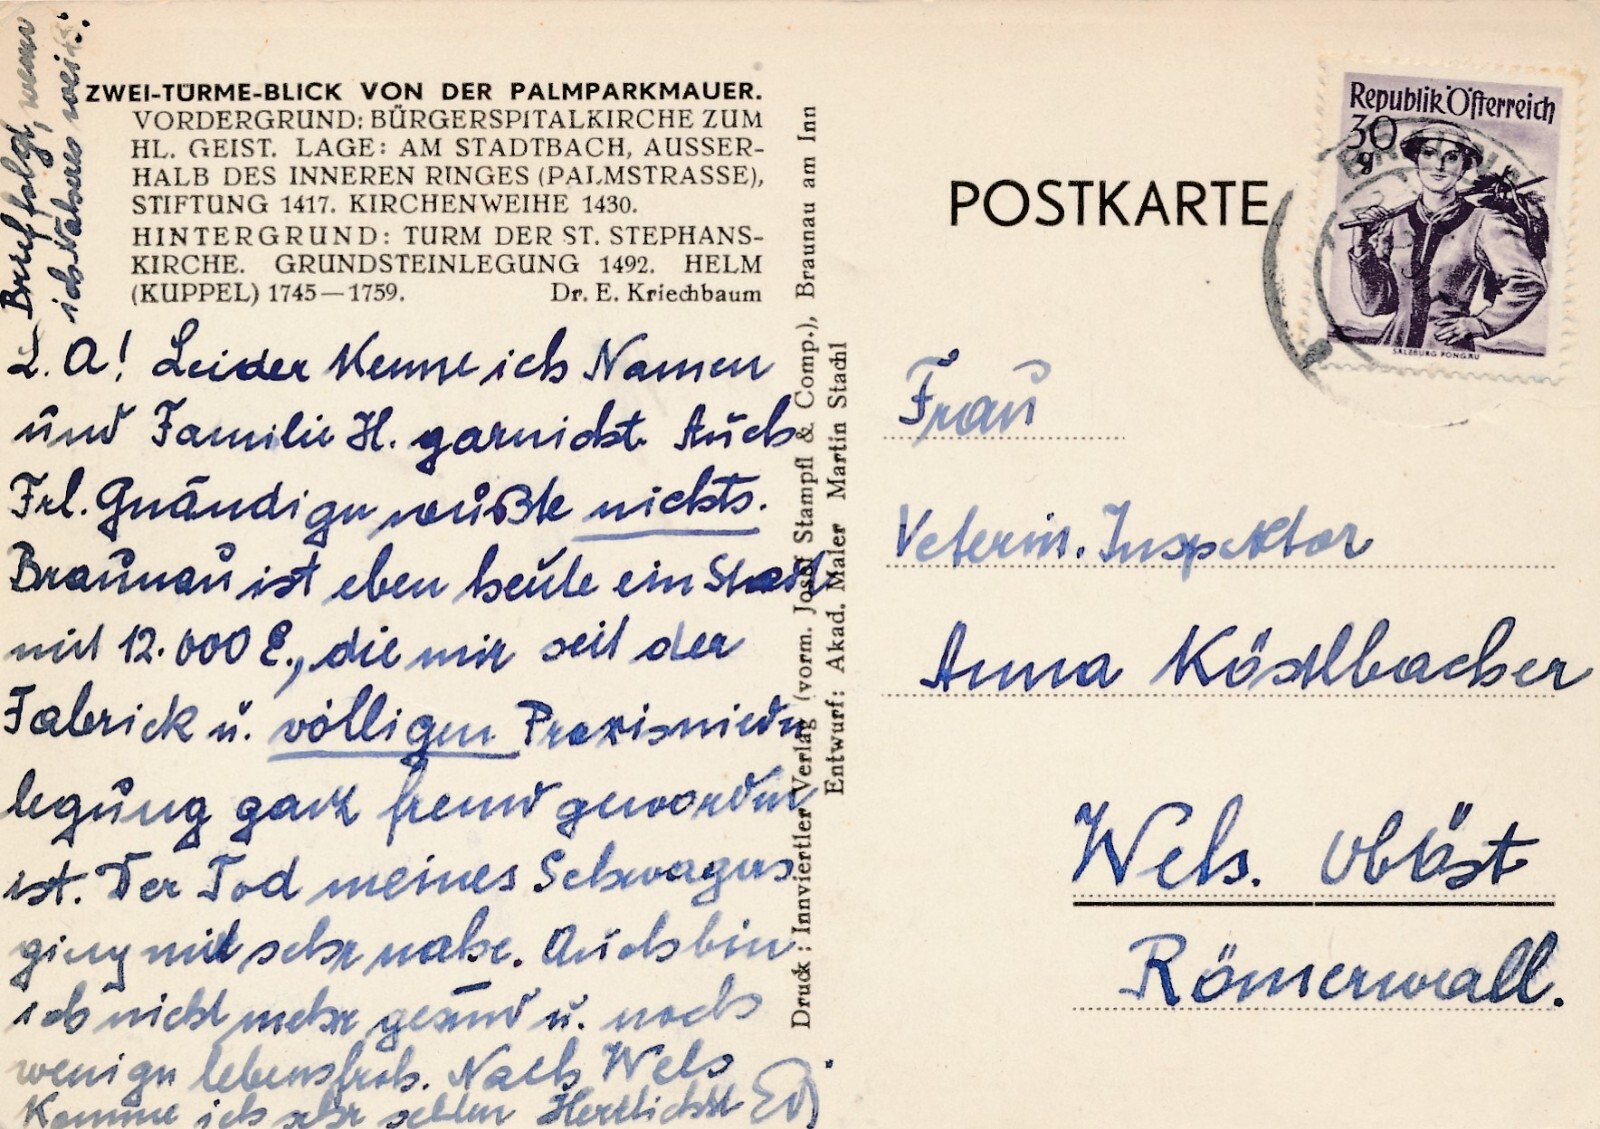 Brief folgt, wenn
ich Näheres weiß.
ZWEI-TÜRME-BLICK VON DER PALMPARKMAUER.
VORDERGRUND: BÜRGERSPITALKIRCHE ZUM
HL. GEIST. LAGE: AM STADTBACH, AUSSER-
HALB DES INNEREN RINGES (PALMSTRASSE),
STIFTUNG 1417. KIRCHENWEIHE 1430.
HINTERGRUND: TURM DER ST. STEPHANS-
KIRCHE. GRUNDSTEINLEGUNG 1492. HELM
(KUPPEL) 1745—1759. Dr. E. Kriechbaum
L. A! Leider kenne ich Namen
und Familie H. garnicht. Auch
Frl. Gnändiger wußte nichts.
Braunau ist eben heute ein Stadt
mit 12.000 E., die mir seit der
Fabrick u. völligen Praxisnieder
legung ganz fremd geworden
ist. Der Tod meines Schwagers
ging mir sehr nahe. Auch bin
ich nicht mehr gesund u. noch
weniger lebensfroh. Nach Wels
komme ich sehr selten Herzlichst
Druck: Innviertler Verlag (vorm. Josef Stampfl & Comp.), Braunau am Inn
Entwurf: Akad. Maler Martin Stachl
POSTKARTE
Republik Österreich
30 g
SALZBURG PONGAU
Frau
Veterin. Inspektor
Anna Köstlbacher
Wels. ObÖst
Römerwall.